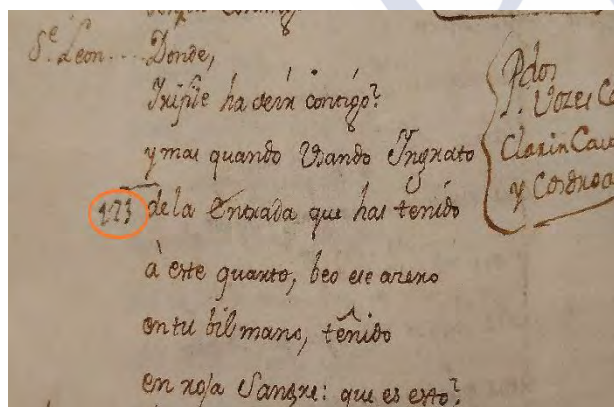 Sᵉ. Leon... Donde,
Irifile ha de ir contigo?
y mas quando Usando Ingrato
123 de la Entrada que has tenido
à este quarto, beo ese azero
en tu bil mano, teñido
en roja Sangre: que es esto?
Pdos
Vozes
Clarin
y